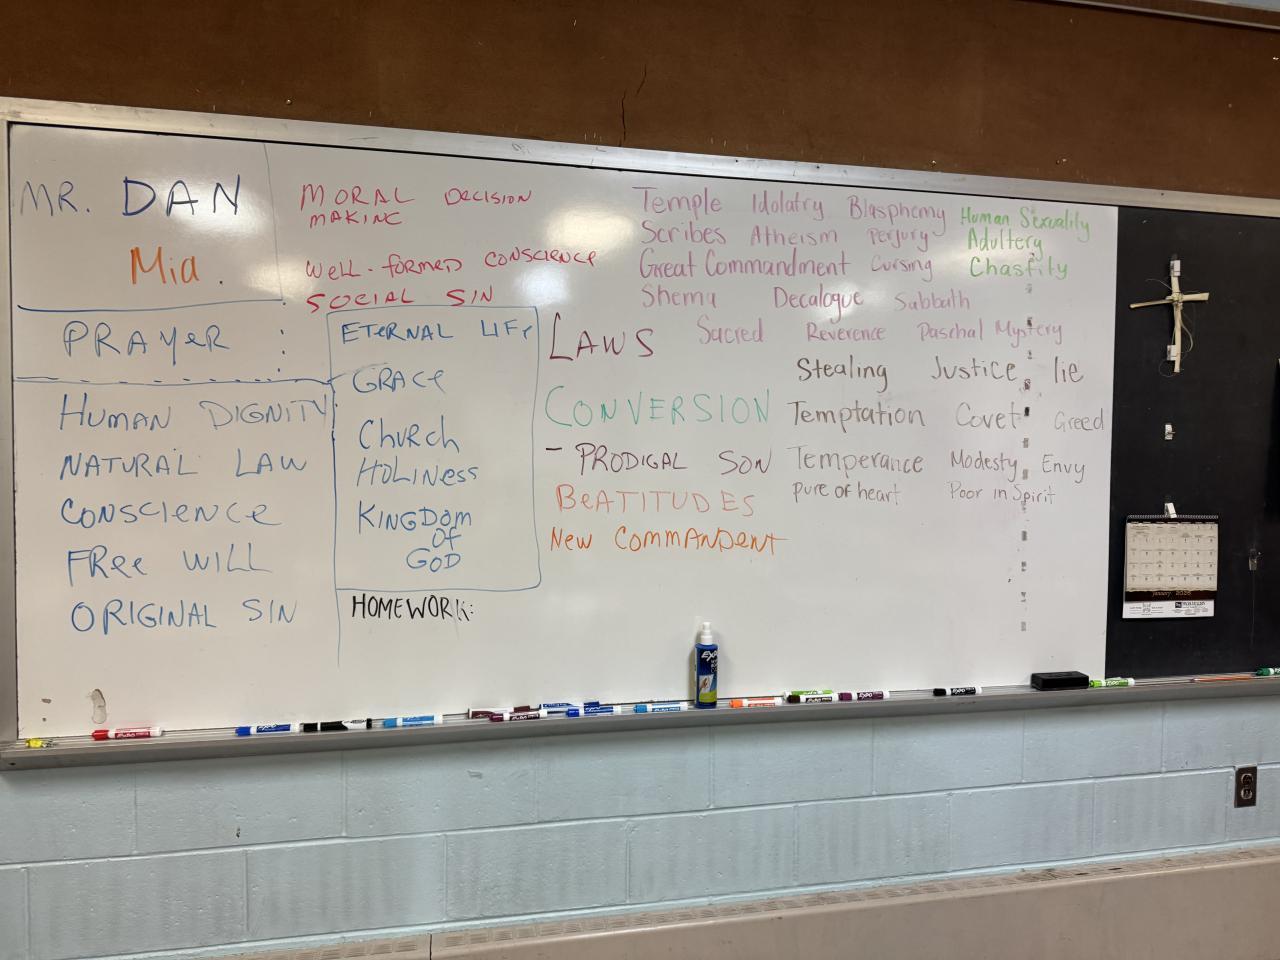 MR. DAN
Mia.
PRAYER :
HUMAN DIGNITY
NATURAL LAW
CONSCIENCE
FREE WILL
ORIGINAL SIN
MORAL DECISION
MAKING
WELL-FORMED CONSCIENCE
SOCIAL SIN
ETERNAL LIFE
GRACE
CHURCH
HOLINESS
KINGDOM
OF
GOD
HOMEWORK:
LAWS
CONVERSION
- PRODIGAL SON
BEATITUDES
NEW COMMANDENT
Temple Idolatry Blasphemy
Scribes Atheism Perjury
Great Commandment Cursing
Shema Decalogue Sabbath
Sacred Reverence Paschal Mystery
Human Sexuality
Adultery
Chastity
Stealing Justice lie
Temptation Covet Greed
Temperance Modesty Envy
pure of heart Poor in Spirit
EXPO
January 2026